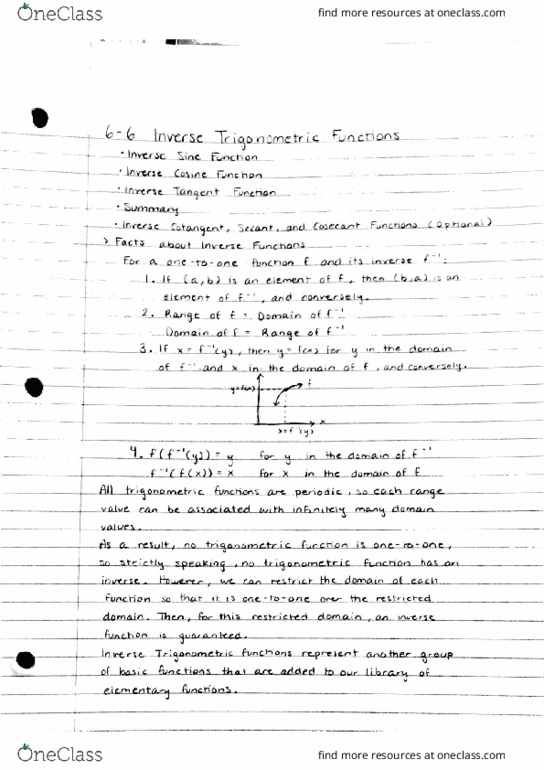 OneClass
find more resources at oneclass.com
6-6 Inverse Trigonometric Functions
• Inverse Sine Function
• Inverse Cosine Function
• Inverse Tangent Function
• Summary
• Inverse Cotangent, Secant, and Cosecant Functions (Optional)
> Facts about Inverse Functions
For a one-to-one function f and its inverse f⁻¹:
1. If (a,b) is an element of f, then (b,a) is an
element of f⁻¹, and conversely.
2. Range of f = Domain of f⁻¹
Domain of f = Range of f⁻¹
3. If x = f⁻¹(y), then y = f(x) for y in the domain
of f⁻¹ and x in the domain of f, and conversely.
y=f(x)
f
x
x=f⁻¹(y)
4. f(f⁻¹(y)) = y for y in the domain of f⁻¹
f⁻¹(f(x)) = x for x in the domain of f
All trigonometric functions are periodic, so each range
value can be associated with infinitely many domain
values.
As a result, no trigonometric function is one-to-one,
so strictly speaking, no trigonometric function has an
inverse. However, we can restrict the domain of each
function so that it is one-to-one over the restricted
domain. Then, for this restricted domain, an inverse
function is guaranteed.
Inverse Trigonometric functions represent another group
of basic functions that are added to our library of
elementary functions.
OneClass
find more resources at oneclass.com